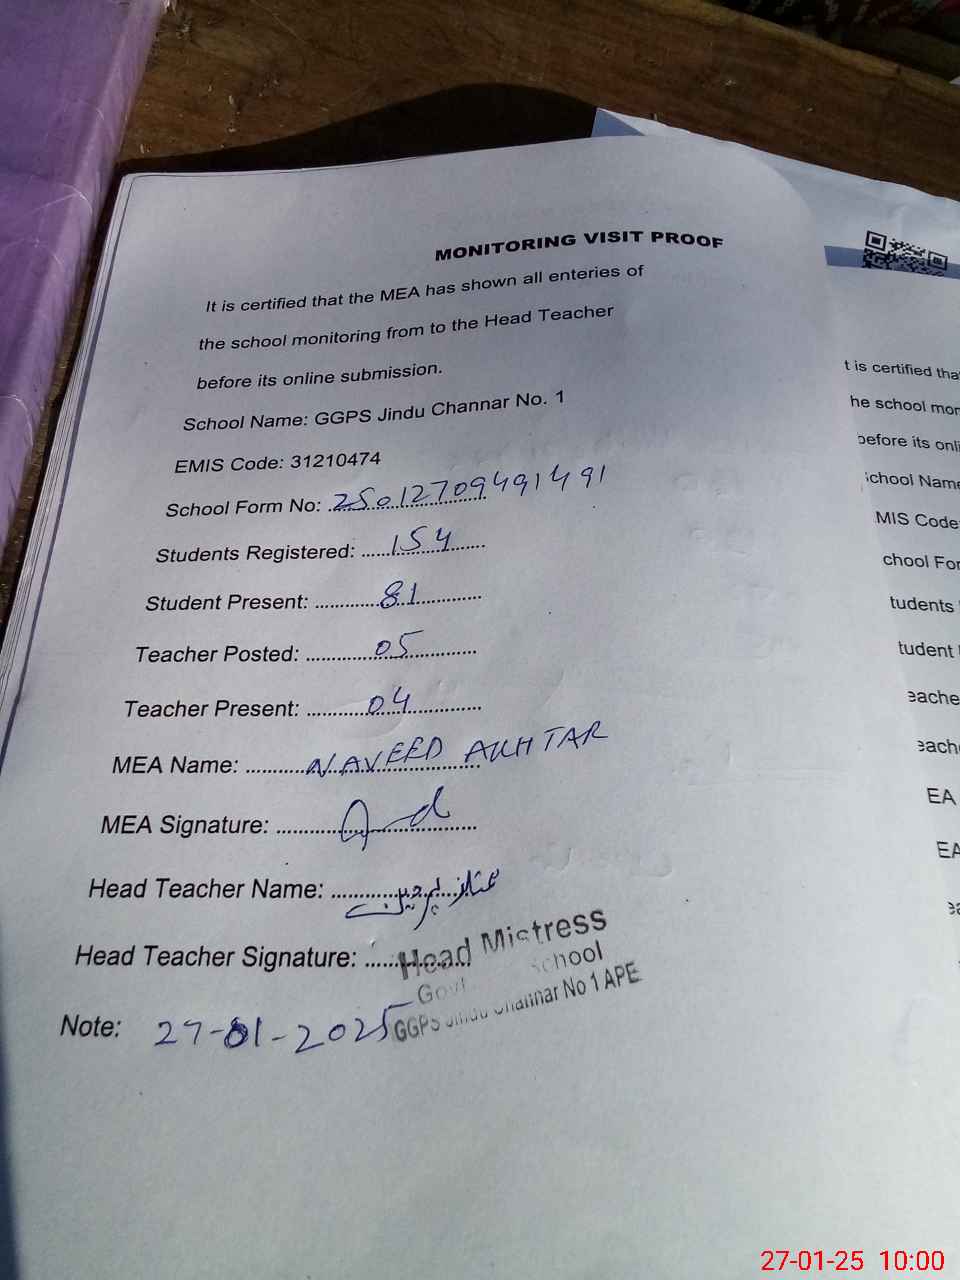 MONITORING VISIT PROOF
It is certified that the MEA has shown all enteries of
the school monitoring from to the Head Teacher
before its online submission.
School Name: GGPS Jindu Channar No. 1
EMIS Code: 31210474
School Form No: 250127094914 91
Students Registered: 154
Student Present: 81
Teacher Posted: 05
Teacher Present: 04
MEA Name: NAVEED AKHTAR
MEA Signature:
Head Teacher Name:
Head Teacher Signature:
Head Mistress
Govt School
GGPS Jindu Channar No 1 APE
Note: 27-01-2025
t is certified tha
he school mor
before its onli
chool Name
MIS Code:
chool For
tudents
tudent
eache
each
EA
EA
27-01-25 10:00